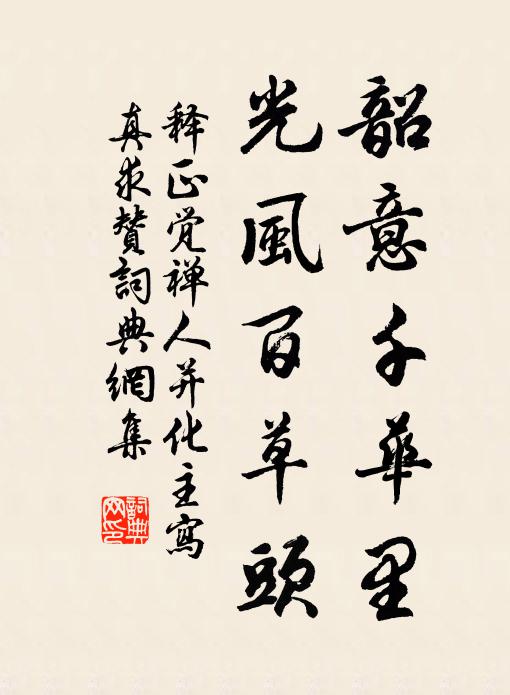 韶意千華里
光風百草頭
释正觉禅人并化主寫
真求贊詞典網集
詞典網印